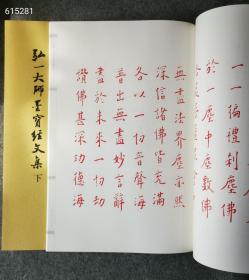 615281
一一徧禮剎塵佛
於一塵中塵數佛
無盡法界塵亦然
深信諸佛皆充滿
各以一切音聲海
普出無盡妙言辭
盡於未來一切劫
讚佛甚深功德海
弘一大師墨寶經文集 下